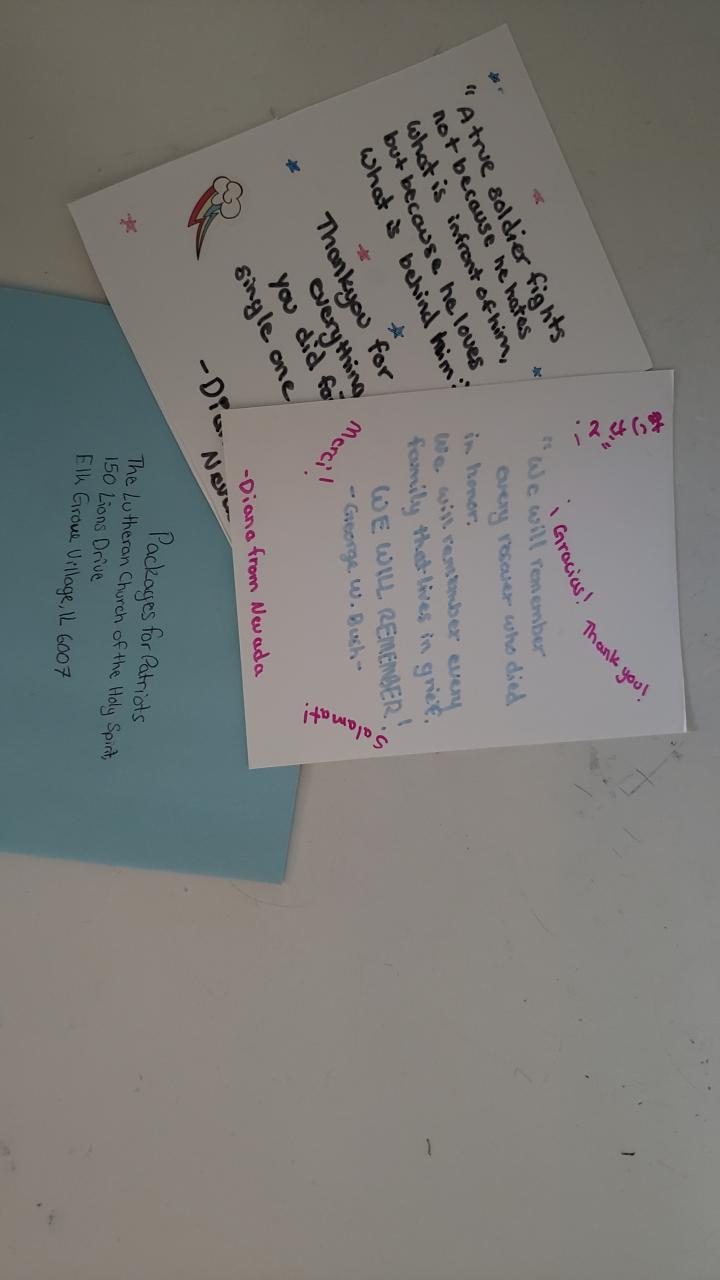 "A true soldier fights
not because he hates
what is infront of him,
but because he loves
what is behind him."
Thankyou for
everything
you did fo
single one
Neva
¡Gracias!
Thank you!
"We will remember
every rescuer who died
in honor.
We will remember every
family that lives in grief.
WE WILL REMEMBER!
-George W. Bush-
Merci!
Salamat!
-Diana from Nevada
Packages for Patriots
The Lutheran Church of the Holy Spirit,
150 Lions Drive
Elk Grove Village, IL 6007